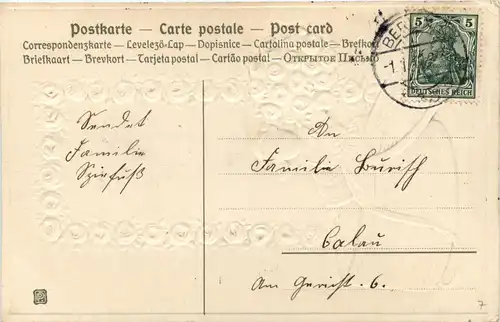 Postkarte – Carte postale – Post card
Correspondenzkarte – Levelező-Lap – Dopisnice – Cartolina postale – Brefkort
Briefkaart – Brevkort – Tarjeta postal – Cartão postal – Открытое Письмо
5 5
DEUTSCHES REICH
Sendet
Familie
An
Familie
Calau
Am Gericht. 6.
7